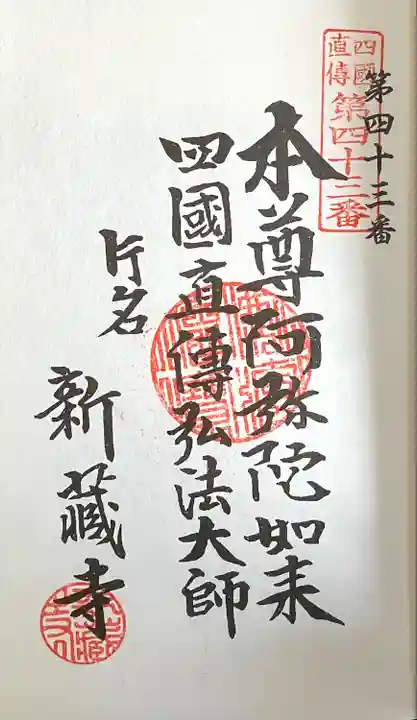 四國直傳
第四十三番
第四十三番
本尊阿弥陀如来
四國直傳弘法大師
片名
新蔵寺